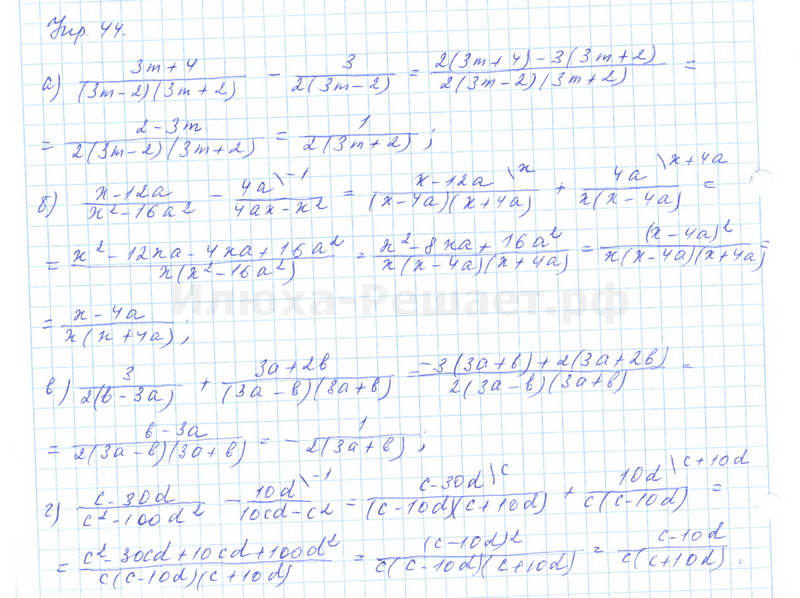 Упр. 44.
а) (3m+4)/((3m-2)(3m+2)) - 3/(2(3m-2)) = (2(3m+4)-3(3m+2))/(2(3m-2)(3m+2)) =
= (2-3m)/(2(3m-2)(3m+2)) = 1/(2(3m+2));
б) (x-12a)/(x²-16a²) - (4a\-1)/(4ax-x²) = (x-12a\x)/((x-4a)(x+4a)) + (4a\x+4a)/(x(x-4a)) =
= (x²-12xa-4xa+16a²)/(x(x²-16a²)) = (x²-8xa+16a²)/(x(x-4a)(x+4a)) = (x-4a)²/(x(x-4a)(x+4a)) =
= (x-4a)/(x(x+4a));
Илюха-Решает.рф
в) 3/(2(b-3a)) + (3a+2b)/((3a-b)(3a+b)) = (-3(3a+b)+2(3a+2b))/(2(3a-b)(3a+b)) =
= (b-3a)/(2(3a-b)(3a+b)) = - 1/(2(3a+b));
г) (c-30d)/(c²-100d²) - (10d\-1)/(10cd-c2) = (c-30d\c)/((c-10d)(c+10d)) + (10d\c+10d)/(c(c-10d)) =
= (c²-30cd+10cd+100d²)/(c(c-10d)(c+10d)) = (c-10d)²/(c(c-10d)(c+10d)) = (c-10d)/(c(c+10d)).